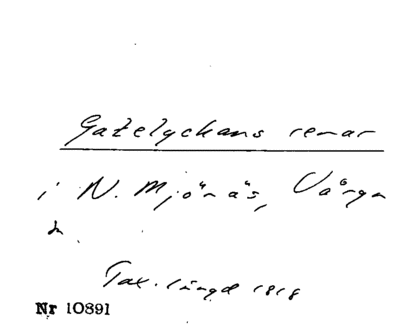 Gatelyckans renar
i N. Mjönäs, Vårga
dn.
Tax. längd 1818
Nr 10891